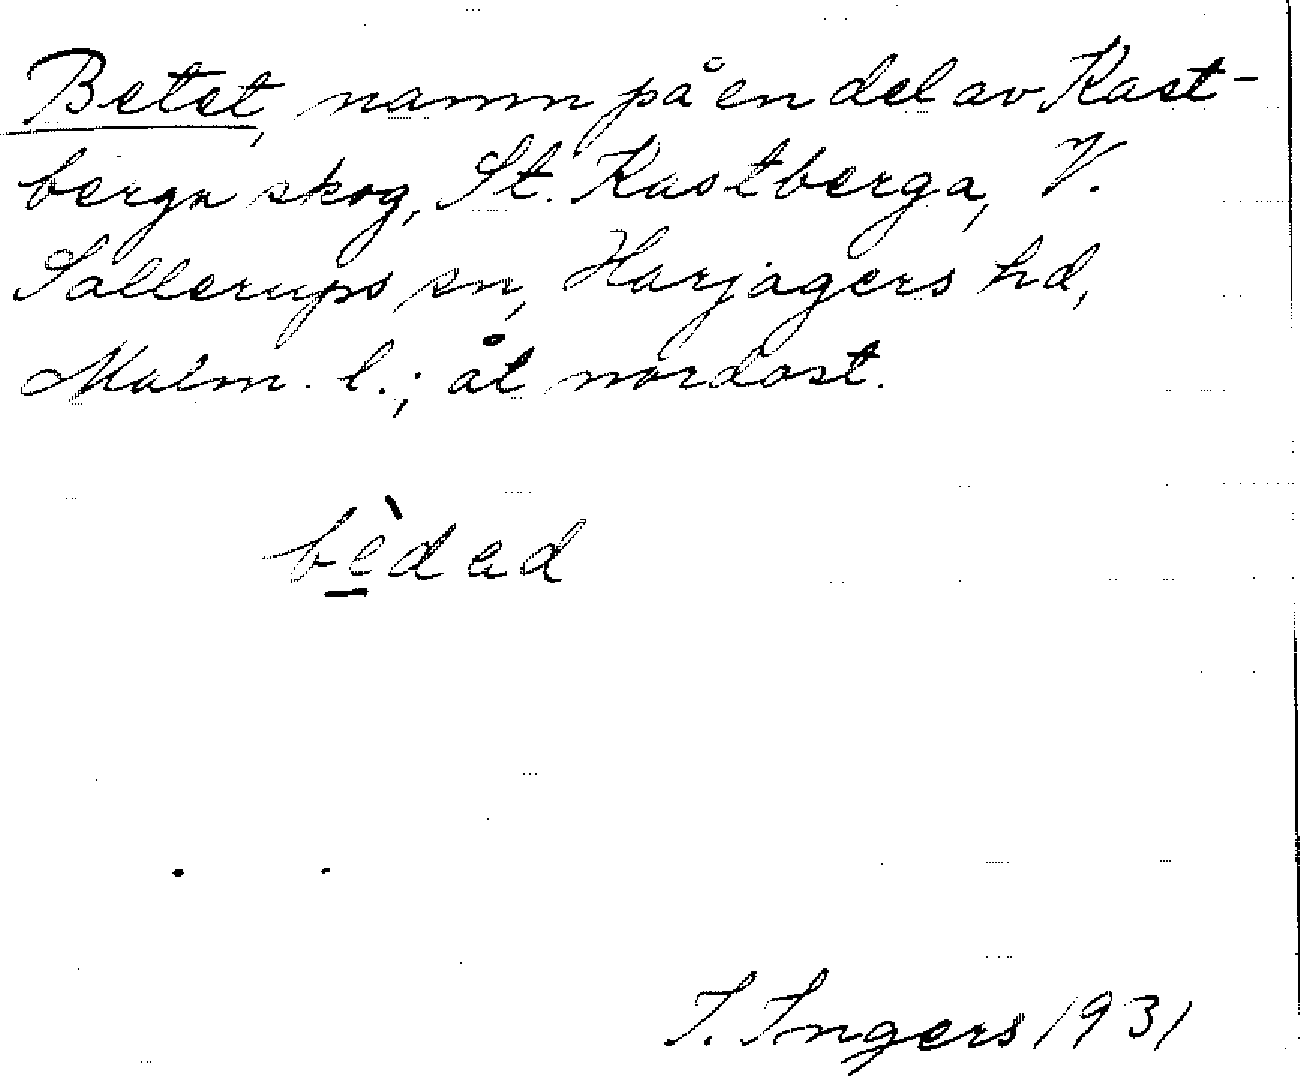 Betet, namn på en del av Kast-
berga skog, St. Kastberga, V.
Sallerups sn, Harjagers hd,
Malm. l.; åt nordost.
bèdad
I. Ingers 1931